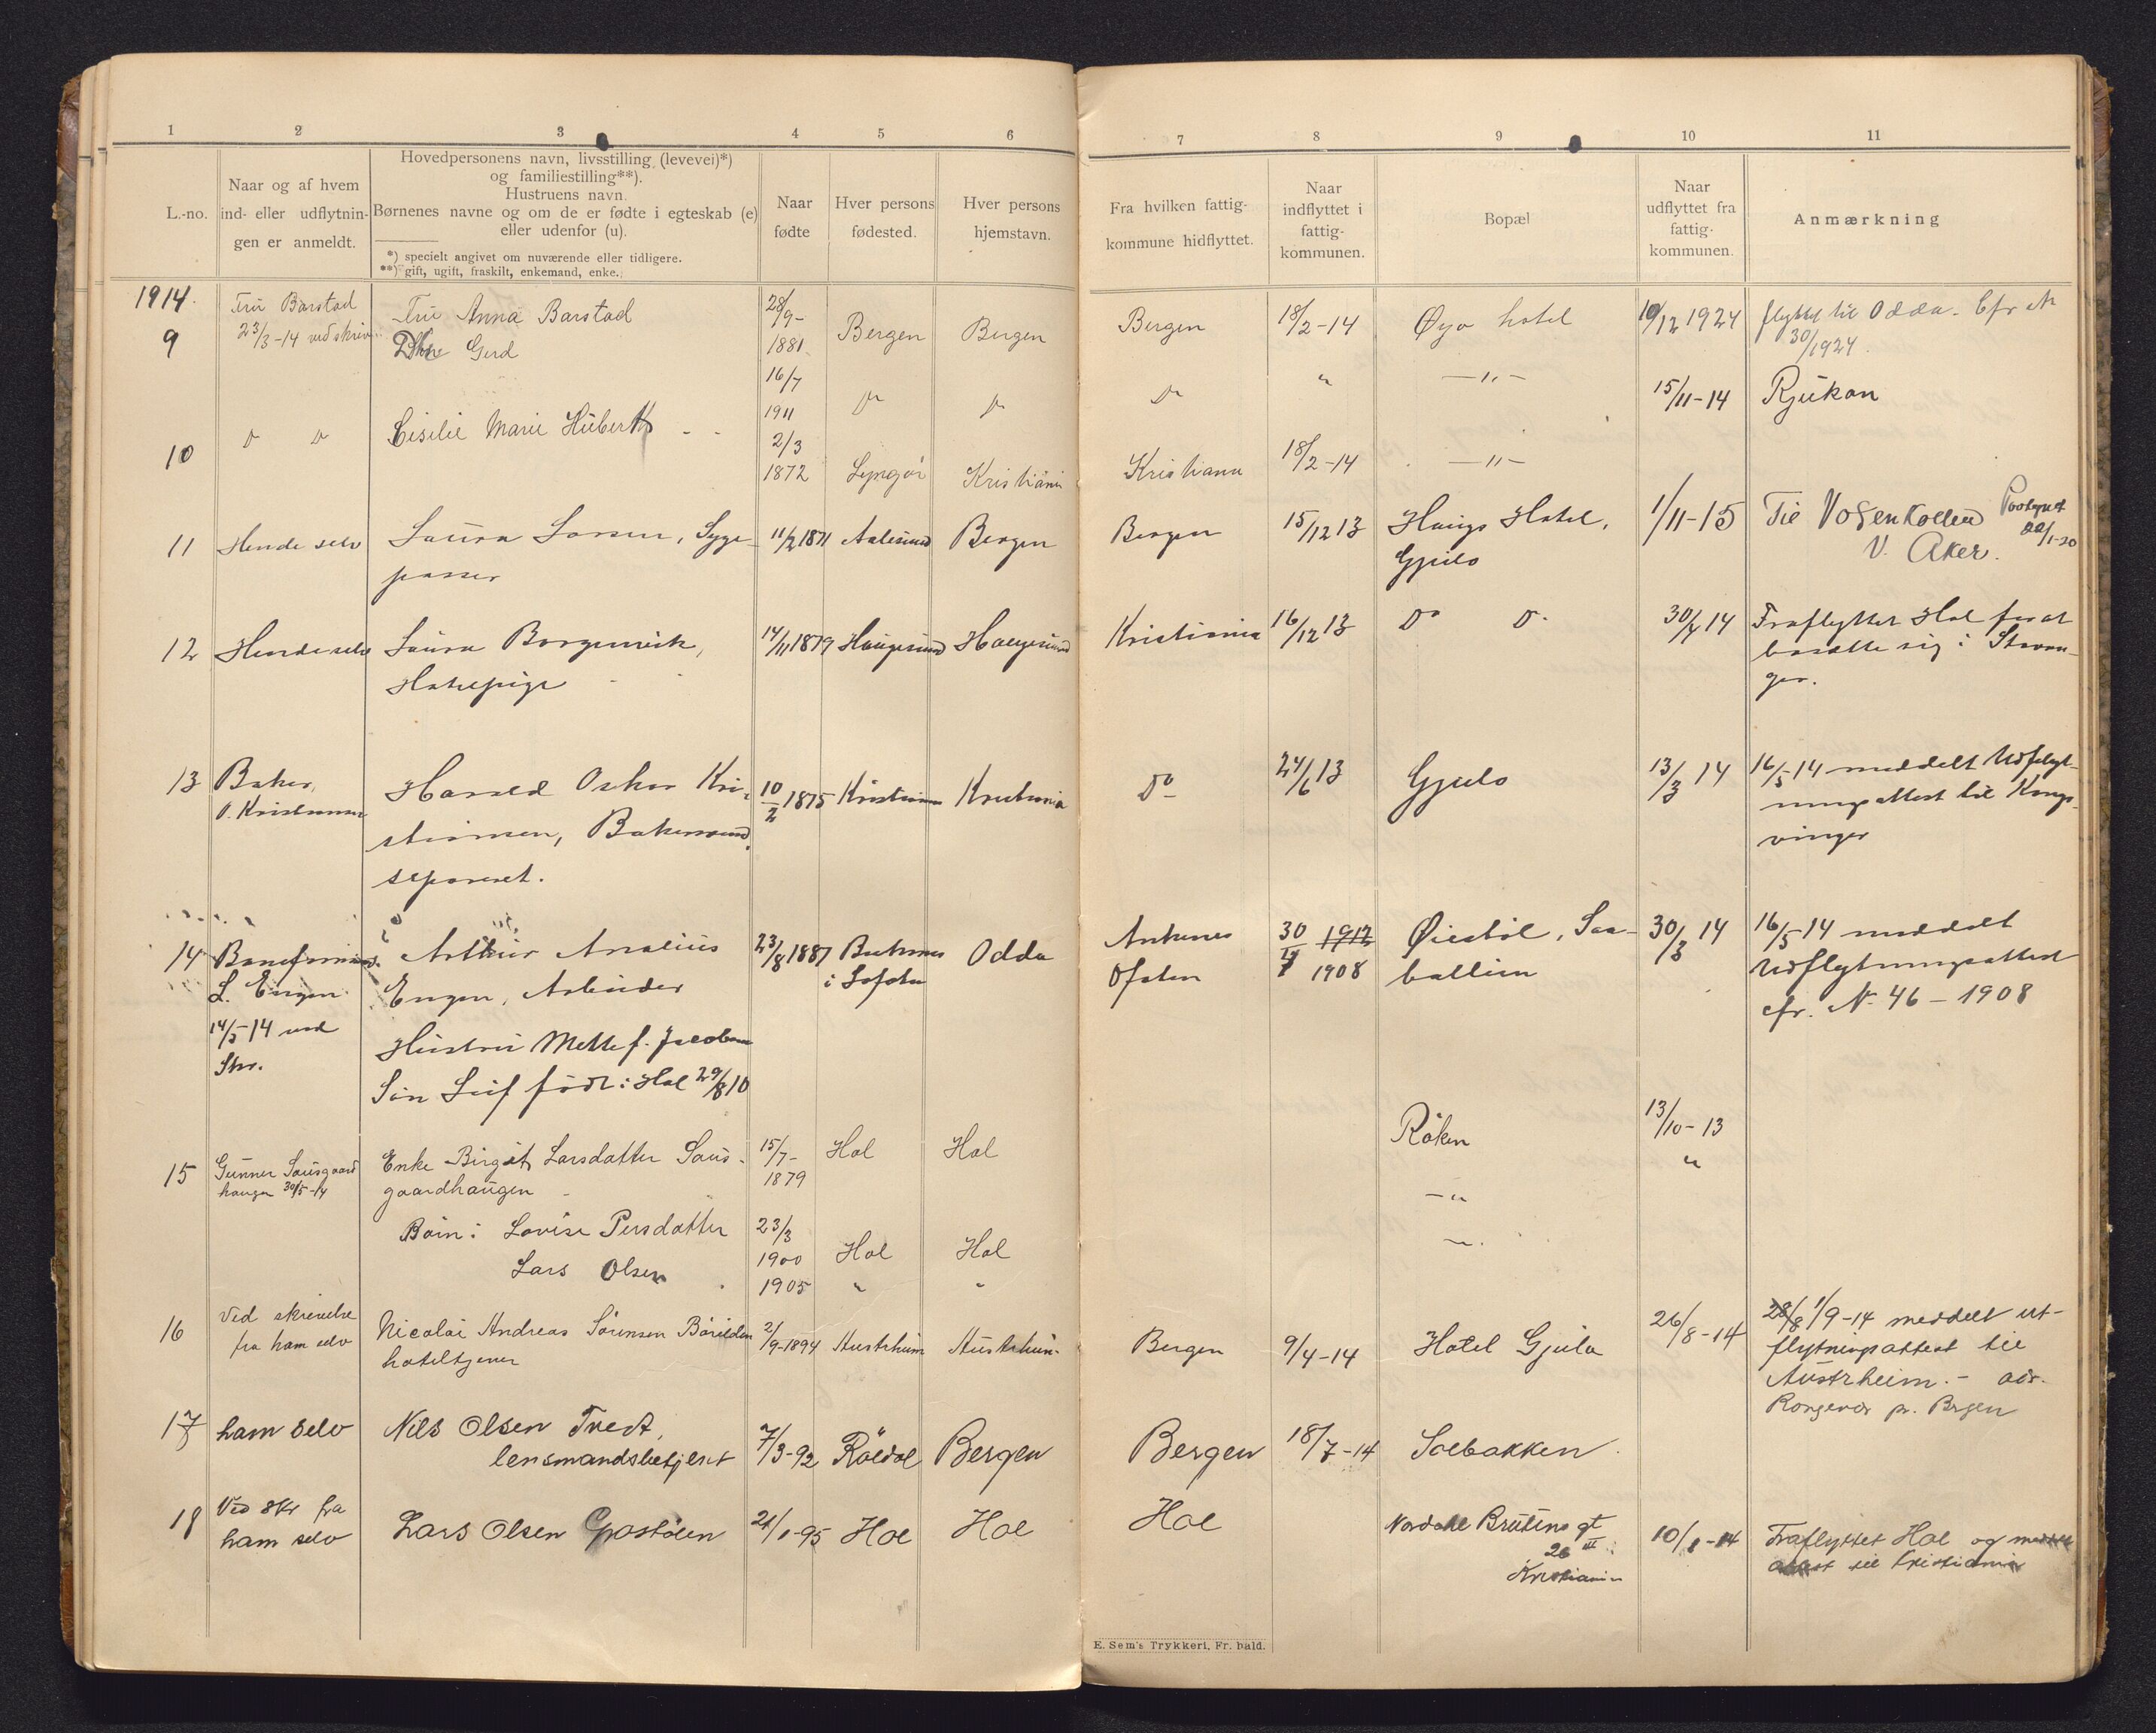 1 2 3 4 5 6 7 8 9 10 11
L.-no.
Naar og af hvem
ind- eller udflytnin-
gen er anmeldt.
Hovedpersonens navn, livsstilling (levevei)*)
og familiestilling**).
Hustruens navn.
Børnenes navne og om de er fødte i egteskab (e)
eller udenfor (u).
*) specielt angivet om nuværende eller tidligere.
**) gift, ugift, fraskilt, enkemand, enke.
Naar
fødte
Hver persons
fødested.
Hver persons
hjemstavn.
Fra hvilken fattig-
kommune hidflyttet.
Naar
indflyttet i
fattig-
kommunen.
Bopæl
Naar
udflyttet fra
fattig-
kommunen.
Anmærkning
1914.
9
Fru Barstad
23/3-14 ved skriv.
Fru Anna Barstad
Gerd
28/9-
1881
Bergen
Bergen
Bergen
18/2-14
Øyo hotel
10/12 1924
flyttet til Odda. Cfr N
30/1924.
16/7
1911
Do
Do
Do
"
—"—
15/11-14
Rjukan
10
Do Do
Cisilie Marie Hübert
2/3
1872
Lyngör
Kristiania
Kristiania
18/2-14
—"—
11
Hende selv
Laura Larsen, Syge-
passer
11/2 1871
Aalesund
Bergen
Bergen
15/12 13
Haugs Hotel,
Gjeilo
1/11-15
Til Voksenkollen
V. Aker.
22/1-20
12
Hende selv
Laura Borgenvik,
Hotelpige
14/11 1879
Haugesund
Haugesund
Kristiania
16/12 13
Do Do
30/4 14
Fraflyttet Hol for at
bosætte sig i Stavan-
ger.
13
Baker,
O. Kristiansen
Harald Oskar Kri-
stiansen, Bakersvend,
separeret.
10/2 1875
Kristiania
Kristiania
Do
24/6 13
Gjeilo
13/3 14
16/5 14 meddelt Udflyt-
ningsattest til Kongs-
vinger
14
L. Engen
14/5-14 ved
Skr.
Arthur Analius
Engen, Arbeider
Hustru Mette f. Jacobsen
Sön Leif född i Hol 29/8 10
23/8 1887
i Lofoten
Odda
Ankenes
Ofoten
30 1912
1908
Øiestöl, Sau-
ballien
30/3 14
16/5 14 meddelt
Udflytningsattest
cfr. N. 46 - 1908
15
Gunnar Sausgaard
haugen 30/5-14
Enke Birgit Larsdatter Saus-
gaardhaugen
15/7-
1879
Hol
Hol
Röken
13/10-13
Barn: Lovise Persdatter
23/3
1900
Hol
Hol
—"
"
Lars Olsen
1905
"
"
"
16
Ved skrivelse
fra ham selv
Nicolai Andreas Sörensen Börilden
hoteltjener
2/9-1894
Austrheim
Austrheim
Bergen
9/4-14
Hotel Gjeilo
26/8-14
28/8 1/9-14 meddelt ut-
flytningsattest til
Austrheim. - adr.
Rongevær pr. Bergen
17
ham selv
Nils Olsen Tvedt,
lensmandsbetjent
7/3-92
Röldal
Bergen
Bergen
18/7-14
Solbakken
18
Ved skr fra
ham selv
Lars Olsen Gjostölen
21/1-95
Hol
Hol
Hol
Nordahl Bruuns gt
26 III
Kristiania
10/1-14
Fraflyttet Hol og meddelt
attest til Kristiania
E. Sem's Trykkeri, Fr. hald.